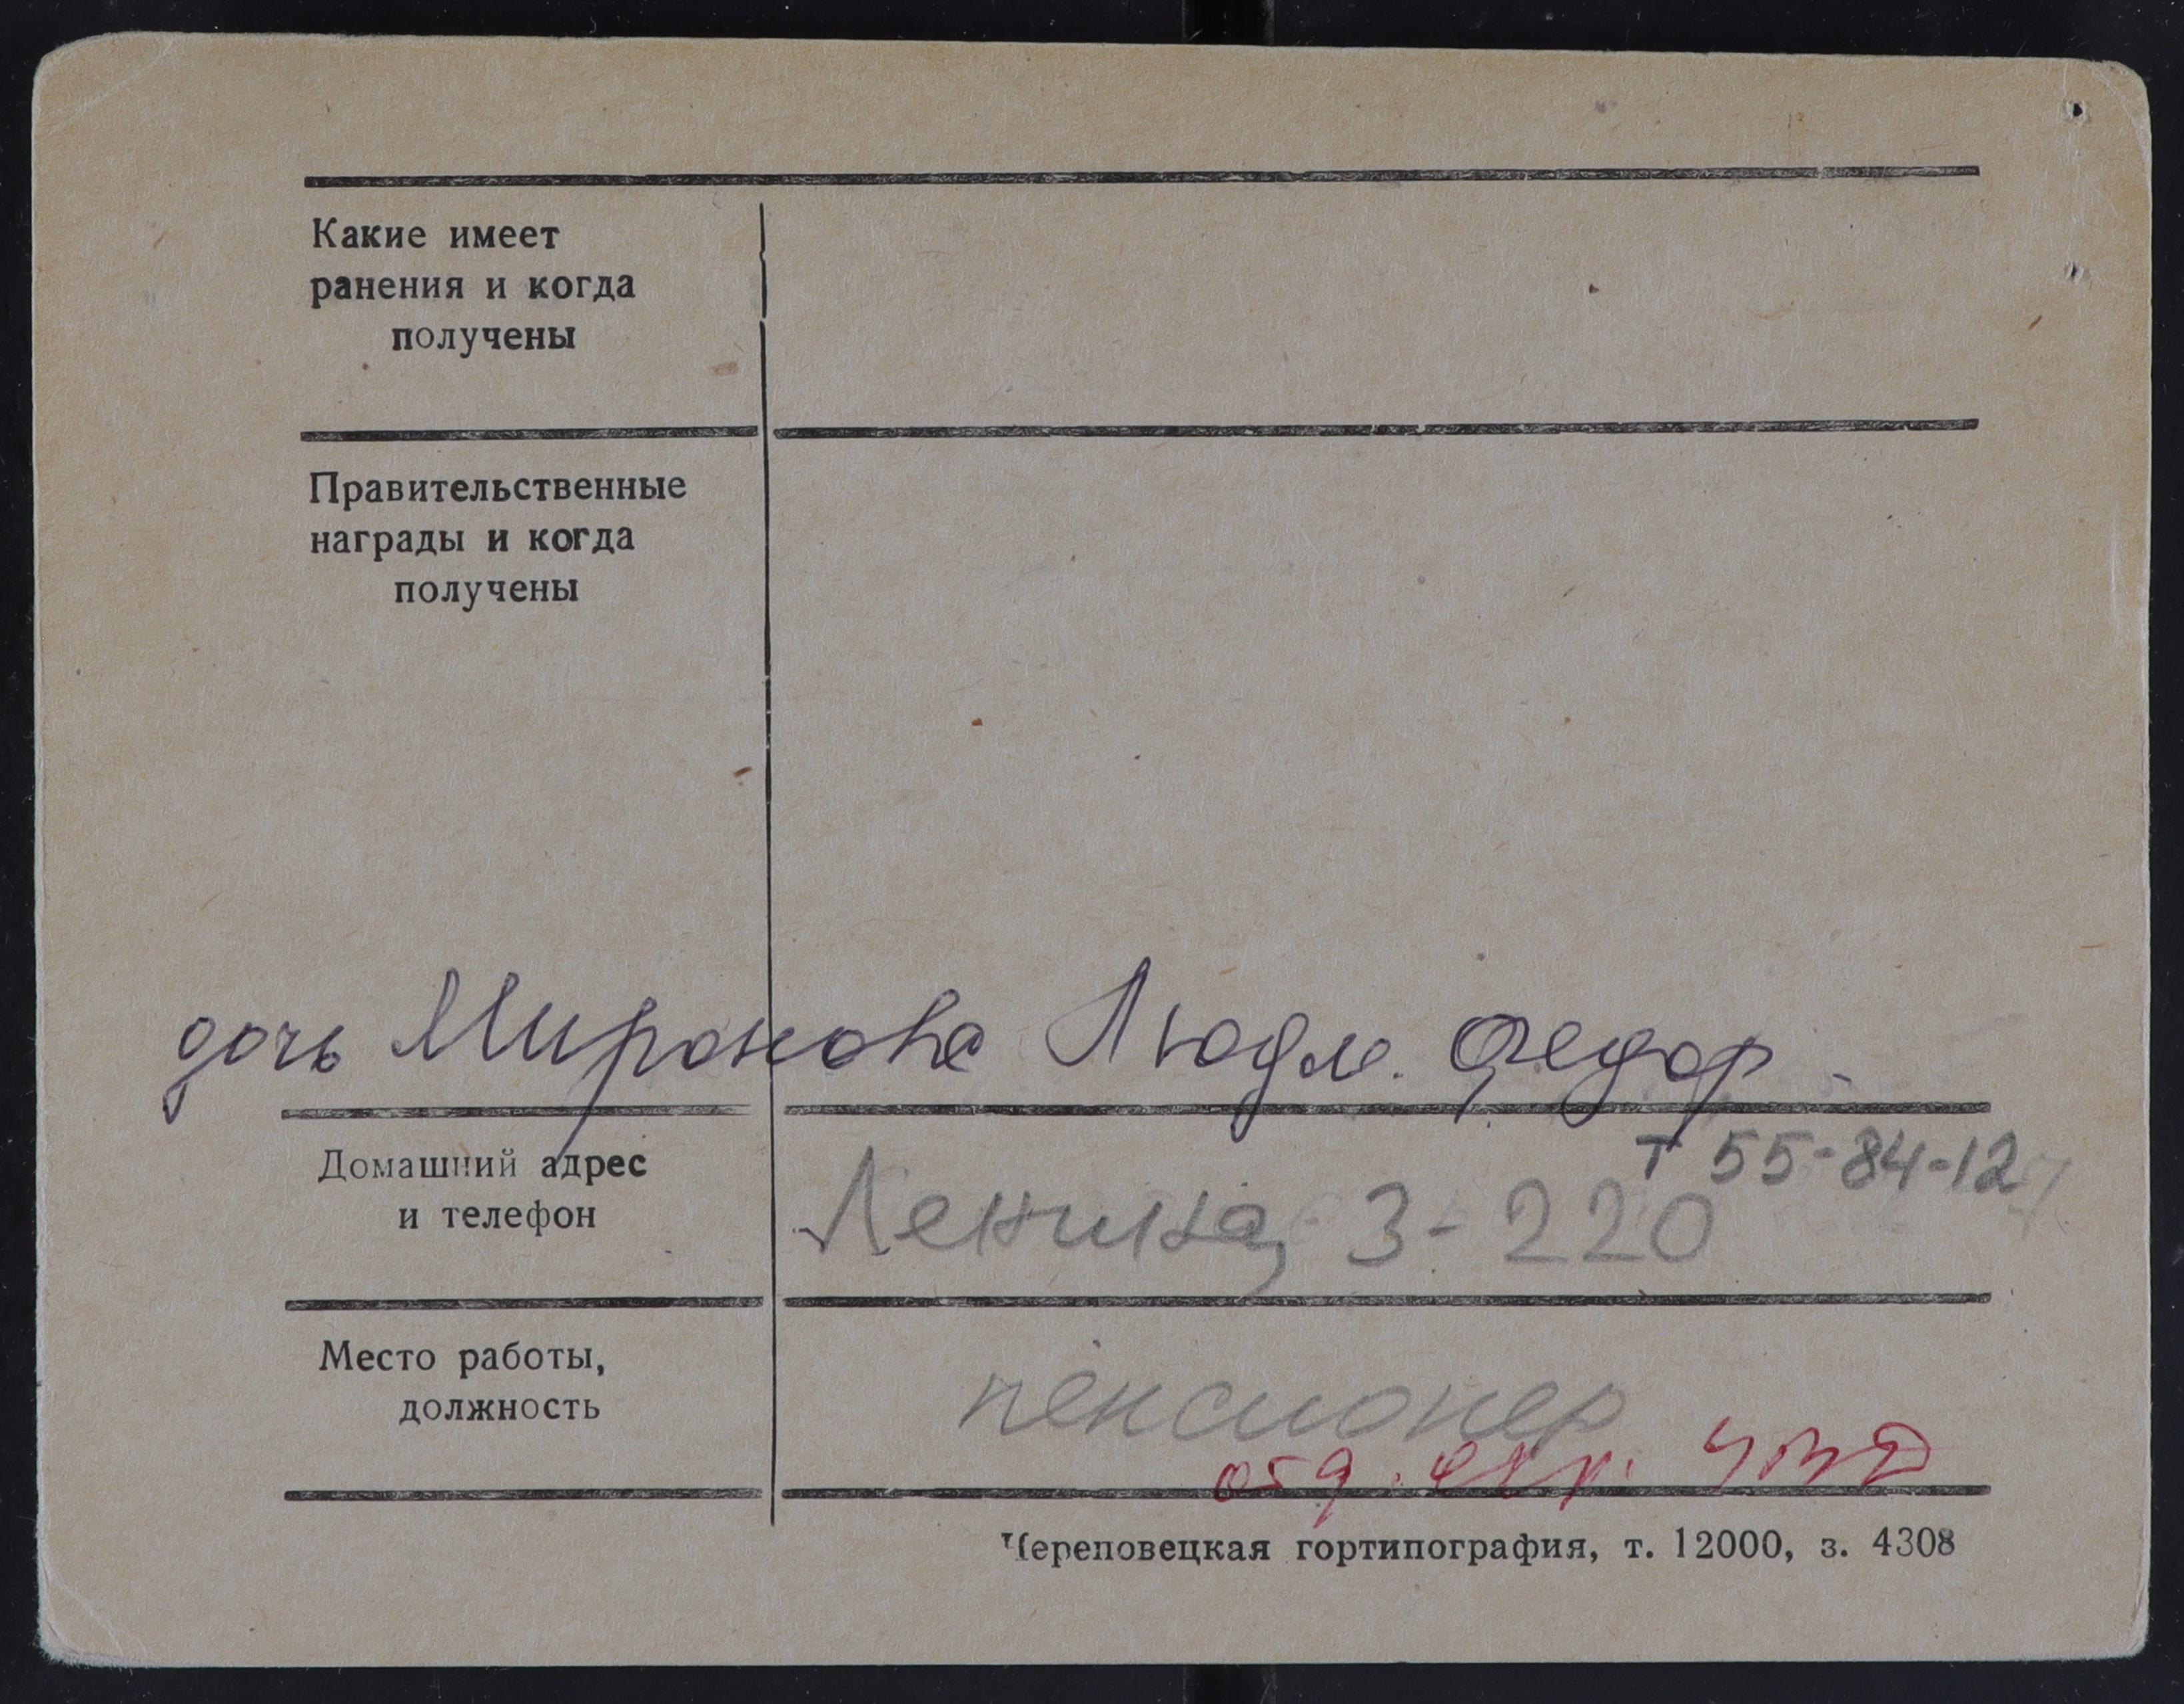 Какие имеет
ранения и когда
получены
Правительственные
награды и когда
получены
дочь Миронова Людм. Федор.
Домашний адрес
и телефон
т 55-84-12
Ленина, 3-220
Место работы,
должность
пенсионер
отд. охр. УВД
Череповецкая гортипография, т. 12000, з. 4308